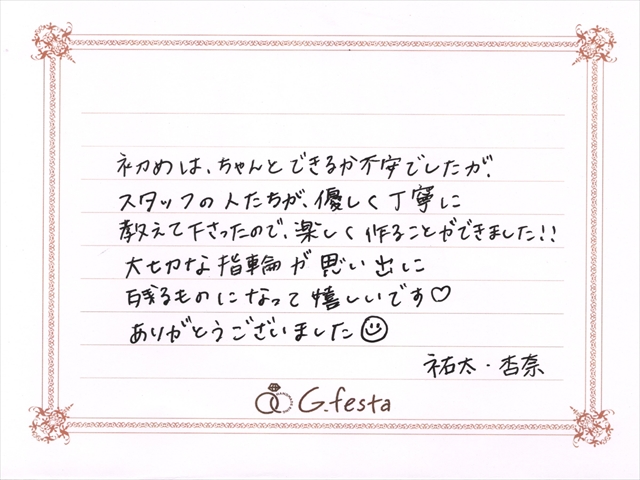 初めは、ちゃんとできるか不安でしたが、
スタッフの人たちが、優しく丁寧に
教えて下さったので、楽しく作ることができました!!
大切な指輪が思い出に
残るものになって嬉しいです♡
ありがとうございました☺
祐太・杏奈
G.festa